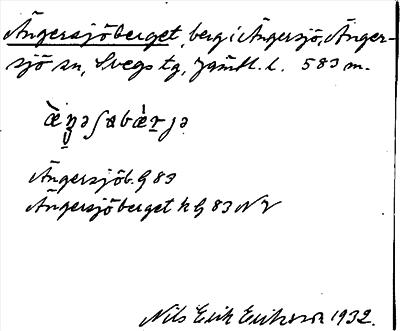 Ängersjöberget, berg i Ängersjö, Änger-
sjö sn, Svegs tg, Jämtl. l. 583 m.
Ängersjöb. G 83
Ängersjöberget h G 83 NV
Nils Erik Erikson 1932.